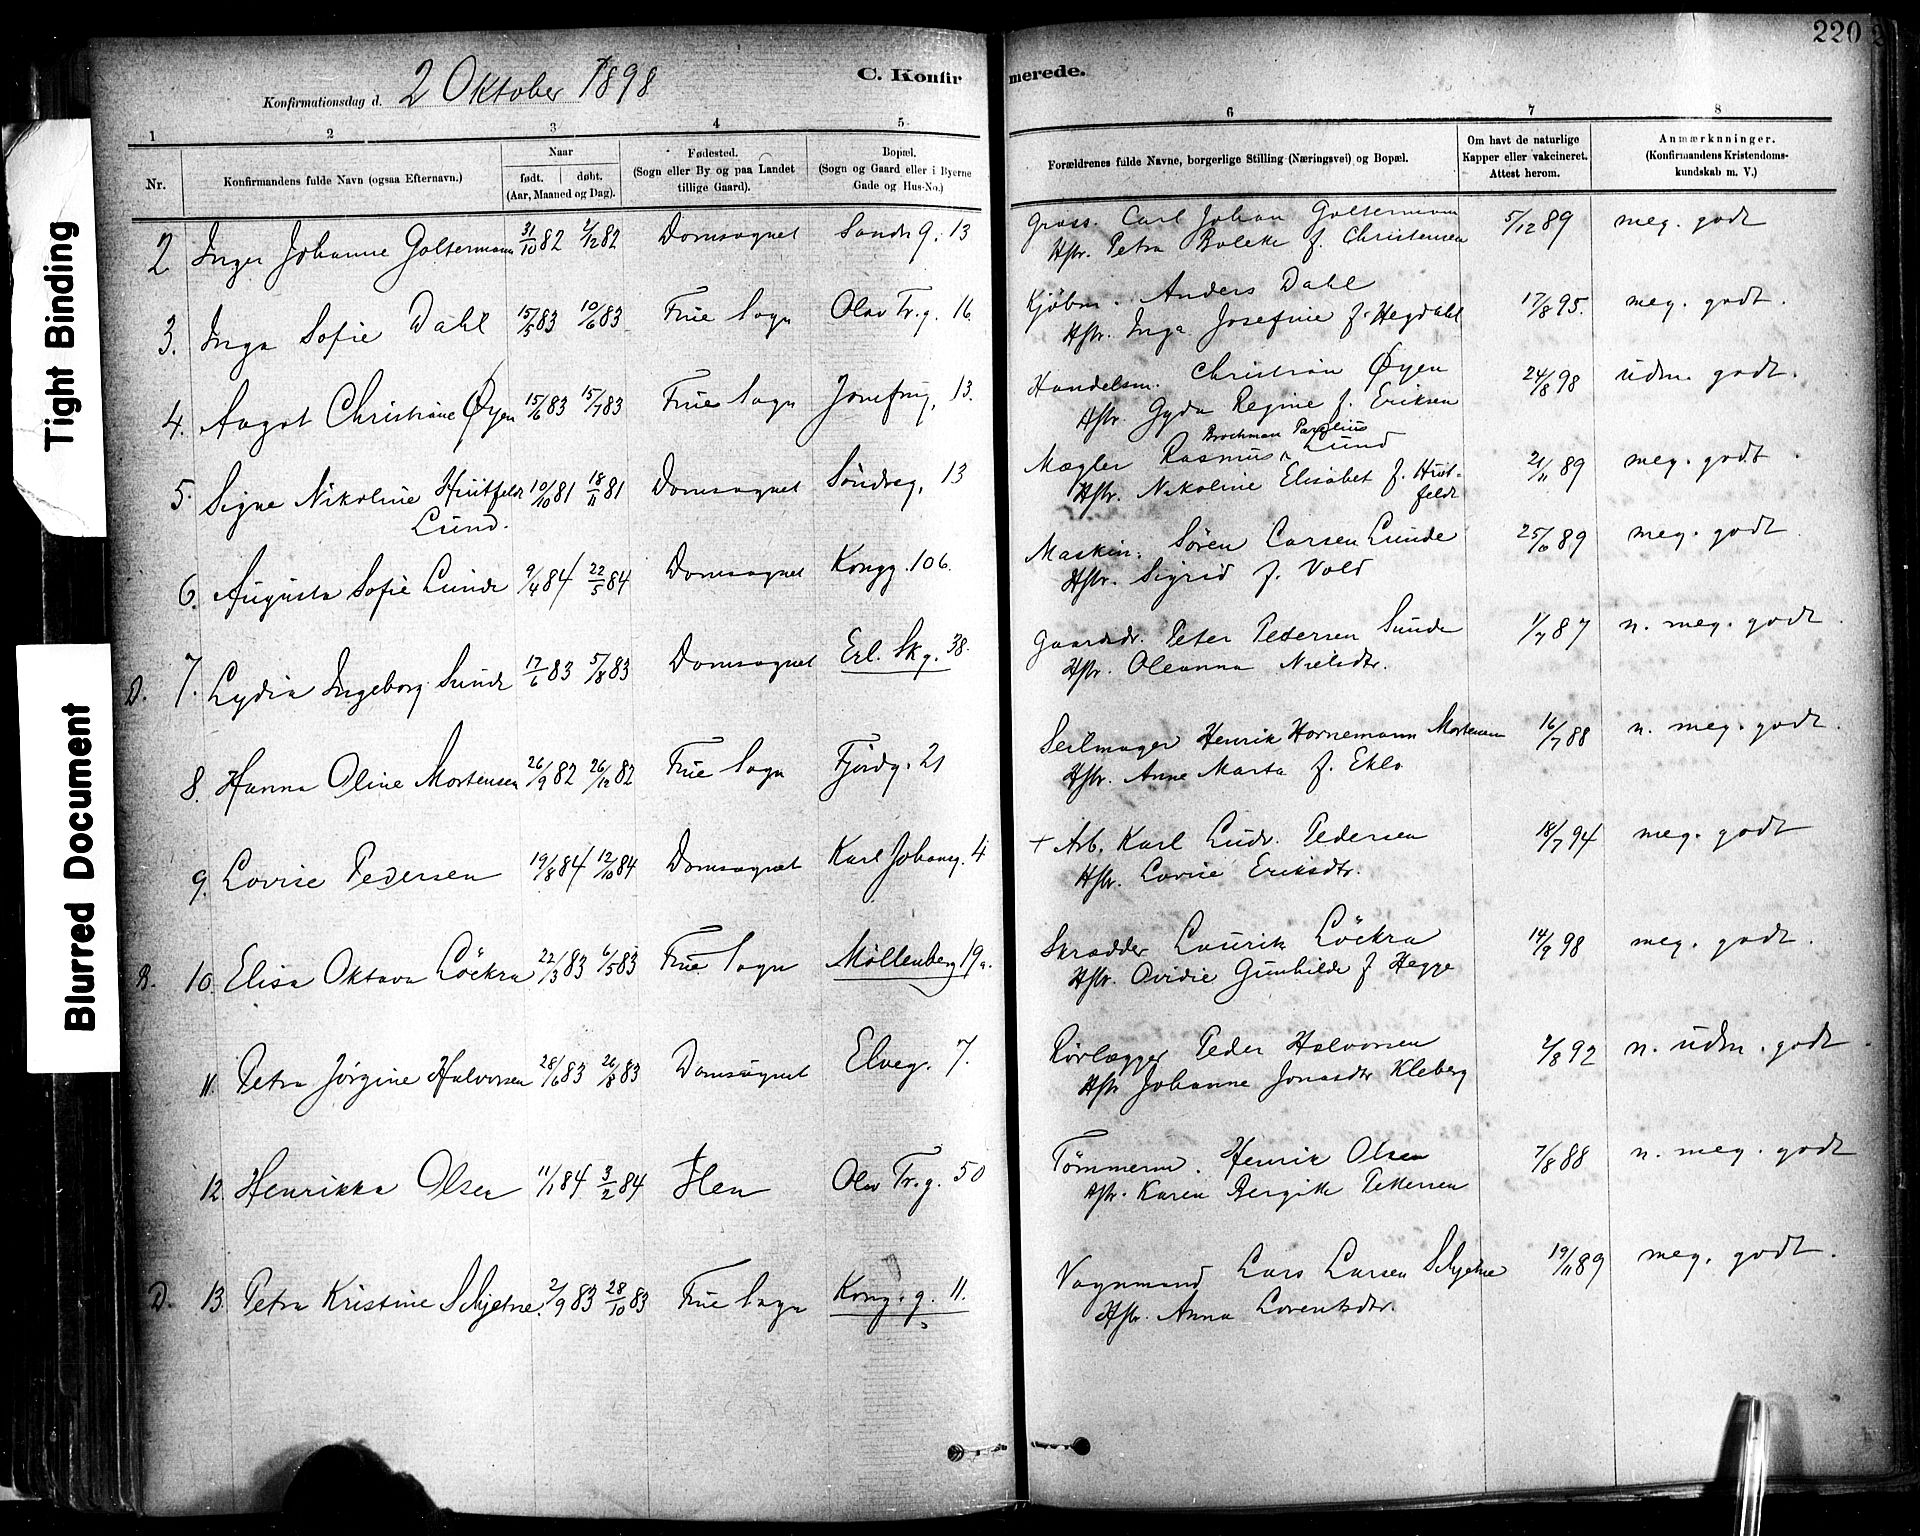 220
C. Konfirmerede.
Konfirmationsdag d. 2 Oktober 1898
1 2 3 4 5 6 7 8
Nr.
Konfirmandens fulde Navn (ogsaa Efternavn).
Naar
født. døbt.
(Aar, Maaned og Dag).
Fødested.
(Sogn eller By og paa Landet
tillige Gaard).
Bopæl.
(Sogn og Gaard eller i Byerne
Gade og Hus-No.)
Forældrenes fulde Navne, borgerlige Stilling (Næringsvei) og Bopæl.
Om havt de naturlige
Kapper eller vakcineret.
Attest herom.
Anmærkninger.
(Konfirmandens Kristendoms-
kundskab m. V.)
2 Inger Johanne Goltermann 31/10 82 2/12 82 Domsognet Sandg. 13 Gross. Carl Johan Goltermann 5/12 89 meg. godt
Hstr. Petra Bolette f. Christensen
3. Inga Sofie Dahl 15/5 83 10/6 83 Frue Sogn Olav Tr. g. 16. Kjøbm. Anders Dahl 17/8 95. meg. godt.
Hstr. Inga Josefine f. Hegdahl
4. Aagot Christiane Øyen 15/6 83 15/7 83 Frue Sogn Jomfrug. 13. Handelsm. Christian Øyen 24/8 98 udm. godt.
Hstr. Gyda Regine f. Eriksen
Brochman Parelius
5. Signe Nikoline Huitfeldt 10/10 81 18/11 81 Domsognet Søndreg. 13 Mægler Rasmus Lund 21/11 89 meg. godt.
Lund.
Hstr. Nikoline Elisabet f. Huit-
feldt
6. Augusta Sofie Lunde 9/4 84 22/5 84 Domsognet Kongg. 106. Maskin. Søren Larsen Lunde 25/6 89 meg. godt
Hstr. Sigrid f. Vold
D. 7. Lydia Ingeborg Sunde 17/6 83 5/8 83 Domsognet Erl. Sk g. 38. Gaardsdr. Peter Petersen Sunde 1/7 87 n. meg. godt.
Hstr. Oleanna Nielsdtr.
8. Hanna Oline Mortensen 26/9 82 26/12 82 Frue Sogn Fjordg. 21 Seilmager Henrik Hornemann Mortensen 16/7 88 n. meg. godt.
Hstr. Anne Marta f. Eklo
9. Lovise Pedersen 19/8 84 12/10 84 Domsognet Karl Johansg. 4 + Arb. Karl Ludv. Pedersen 18/7 94 meg. godt
Hstr. Lovise Eriksdtr.
B. 10. Elisa Oktava Löckra 22/3 83 6/5 83 Frue Sogn Møllenberg 19a. Skrædder Laurits Löckra 14/9 98 meg. godt.
Hstr. Ovidie Gunhilde f Hegge
11. Petra Jørgine Halvorsen 28/6 83 26/8 83 Domsognet Elveg. 7. Rørlægger Peder Halvorsen 2/8 92 n. udm. godt.
Hstr Johanne Jonasdtr Kleberg
12. Henrikka Olsen 11/1 84 3/2 84 Ilen Olav Tr. g. 50 Tømmerm. Henrik Olsen 7/8 88 n. meg. godt
Hstr. Karen Bergitte Pettersen
D. 13. Petra Kristine Schjetne. 2/9 83 28/10 83 Frue Sogn Kong. g. 11. Vognmand Lars Larsen Schjetne 19/11 89 meg. godt.
Hstr. Anna Lorentsdtr.
Tight Binding
Blurred Document